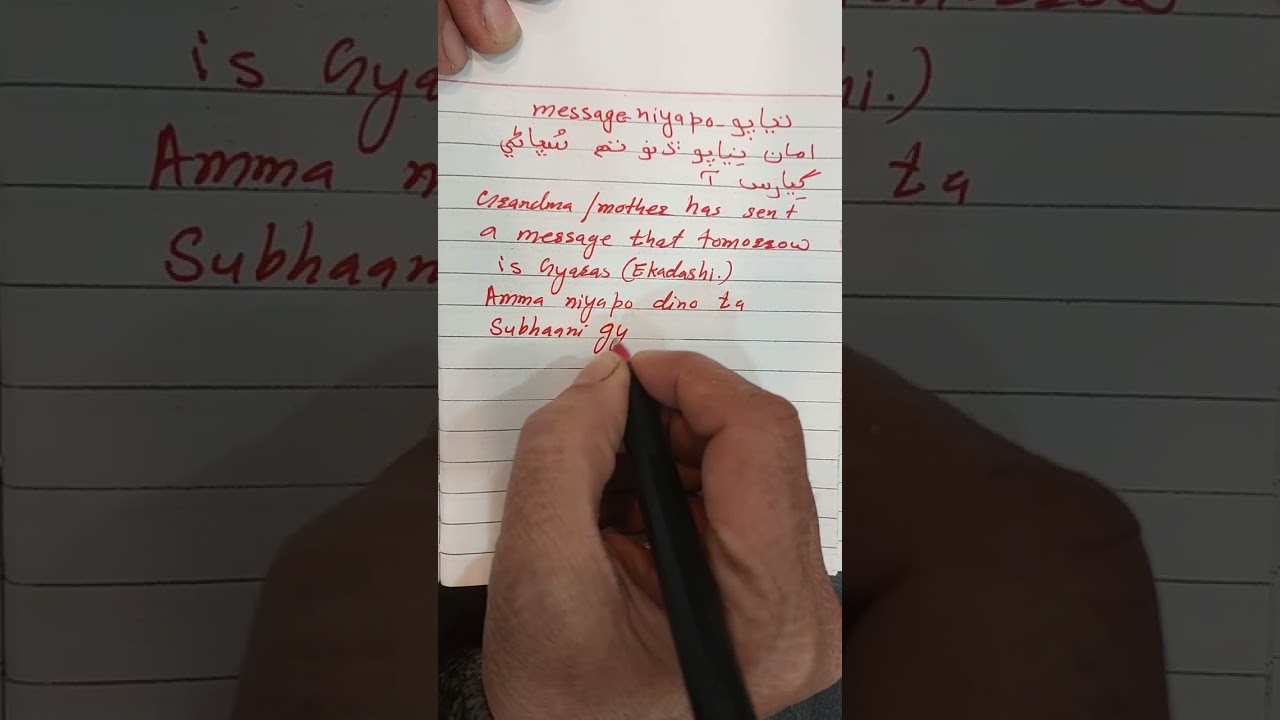 message - niyapo - نياپو
امان نِياپو ڏنو تہ سُڀاڻي
گِيارس آ
Grandma / mother has sent
a message that tomorrow
is Gyaras (Ekadashi.)
Amma niyapo dino ta
Subhaani gy